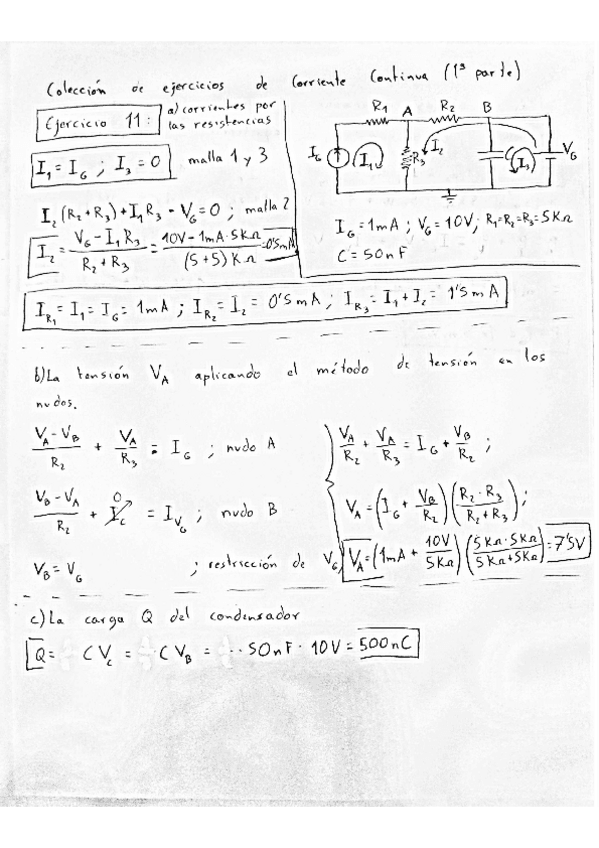 Colección de ejercicios de Corriente Continua (1ª parte)
Ejercicio 11:
a) corrientes por
las resistencias
I₁ = I_G ; I₃ = 0 malla 1 y 3
I₂(R₂+R₃)+I₁R₃ - V_G = 0 ; malla 2
I₂ = (V_G - I₁R₃)/(R₂+R₃) = (10V - 1mA·5KΩ)/((5+5)KΩ) = 0'5mA
R₁ A R₂ B
I_G I₁ R₃ I₂ C I₃ V_G
I_G = 1mA ; V_G = 10V ; R₁=R₂=R₃=5KΩ
C = 50nF
I_R₁ = I₁ = I_G = 1mA ; I_R₂ = I₂ = 0'5mA ; I_R₃ = I₁ + I₂ = 1'5mA
b) La tensión V_A aplicando el método de tensión en los
nudos.
(V_A - V_B)/R₂ + V_A/R₃ = I_G ; nudo A
(V_B - V_A)/R₂ + I_C 0 = I_V_G ; nudo B
V_B = V_G ; restricción de V_G
V_A/R₂ + V_A/R₃ = I_G + V_B/R₂ ;
V_A = (I_G + V_B/R₂)((R₂·R₃)/(R₂+R₃)) ;
V_A = (1mA + 10V/5KΩ)((5KΩ·5KΩ)/(5KΩ+5KΩ)) = 7'5V
c) La carga Q del condensador
Q = CV_C = CV_B = 50nF · 10V = 500nC